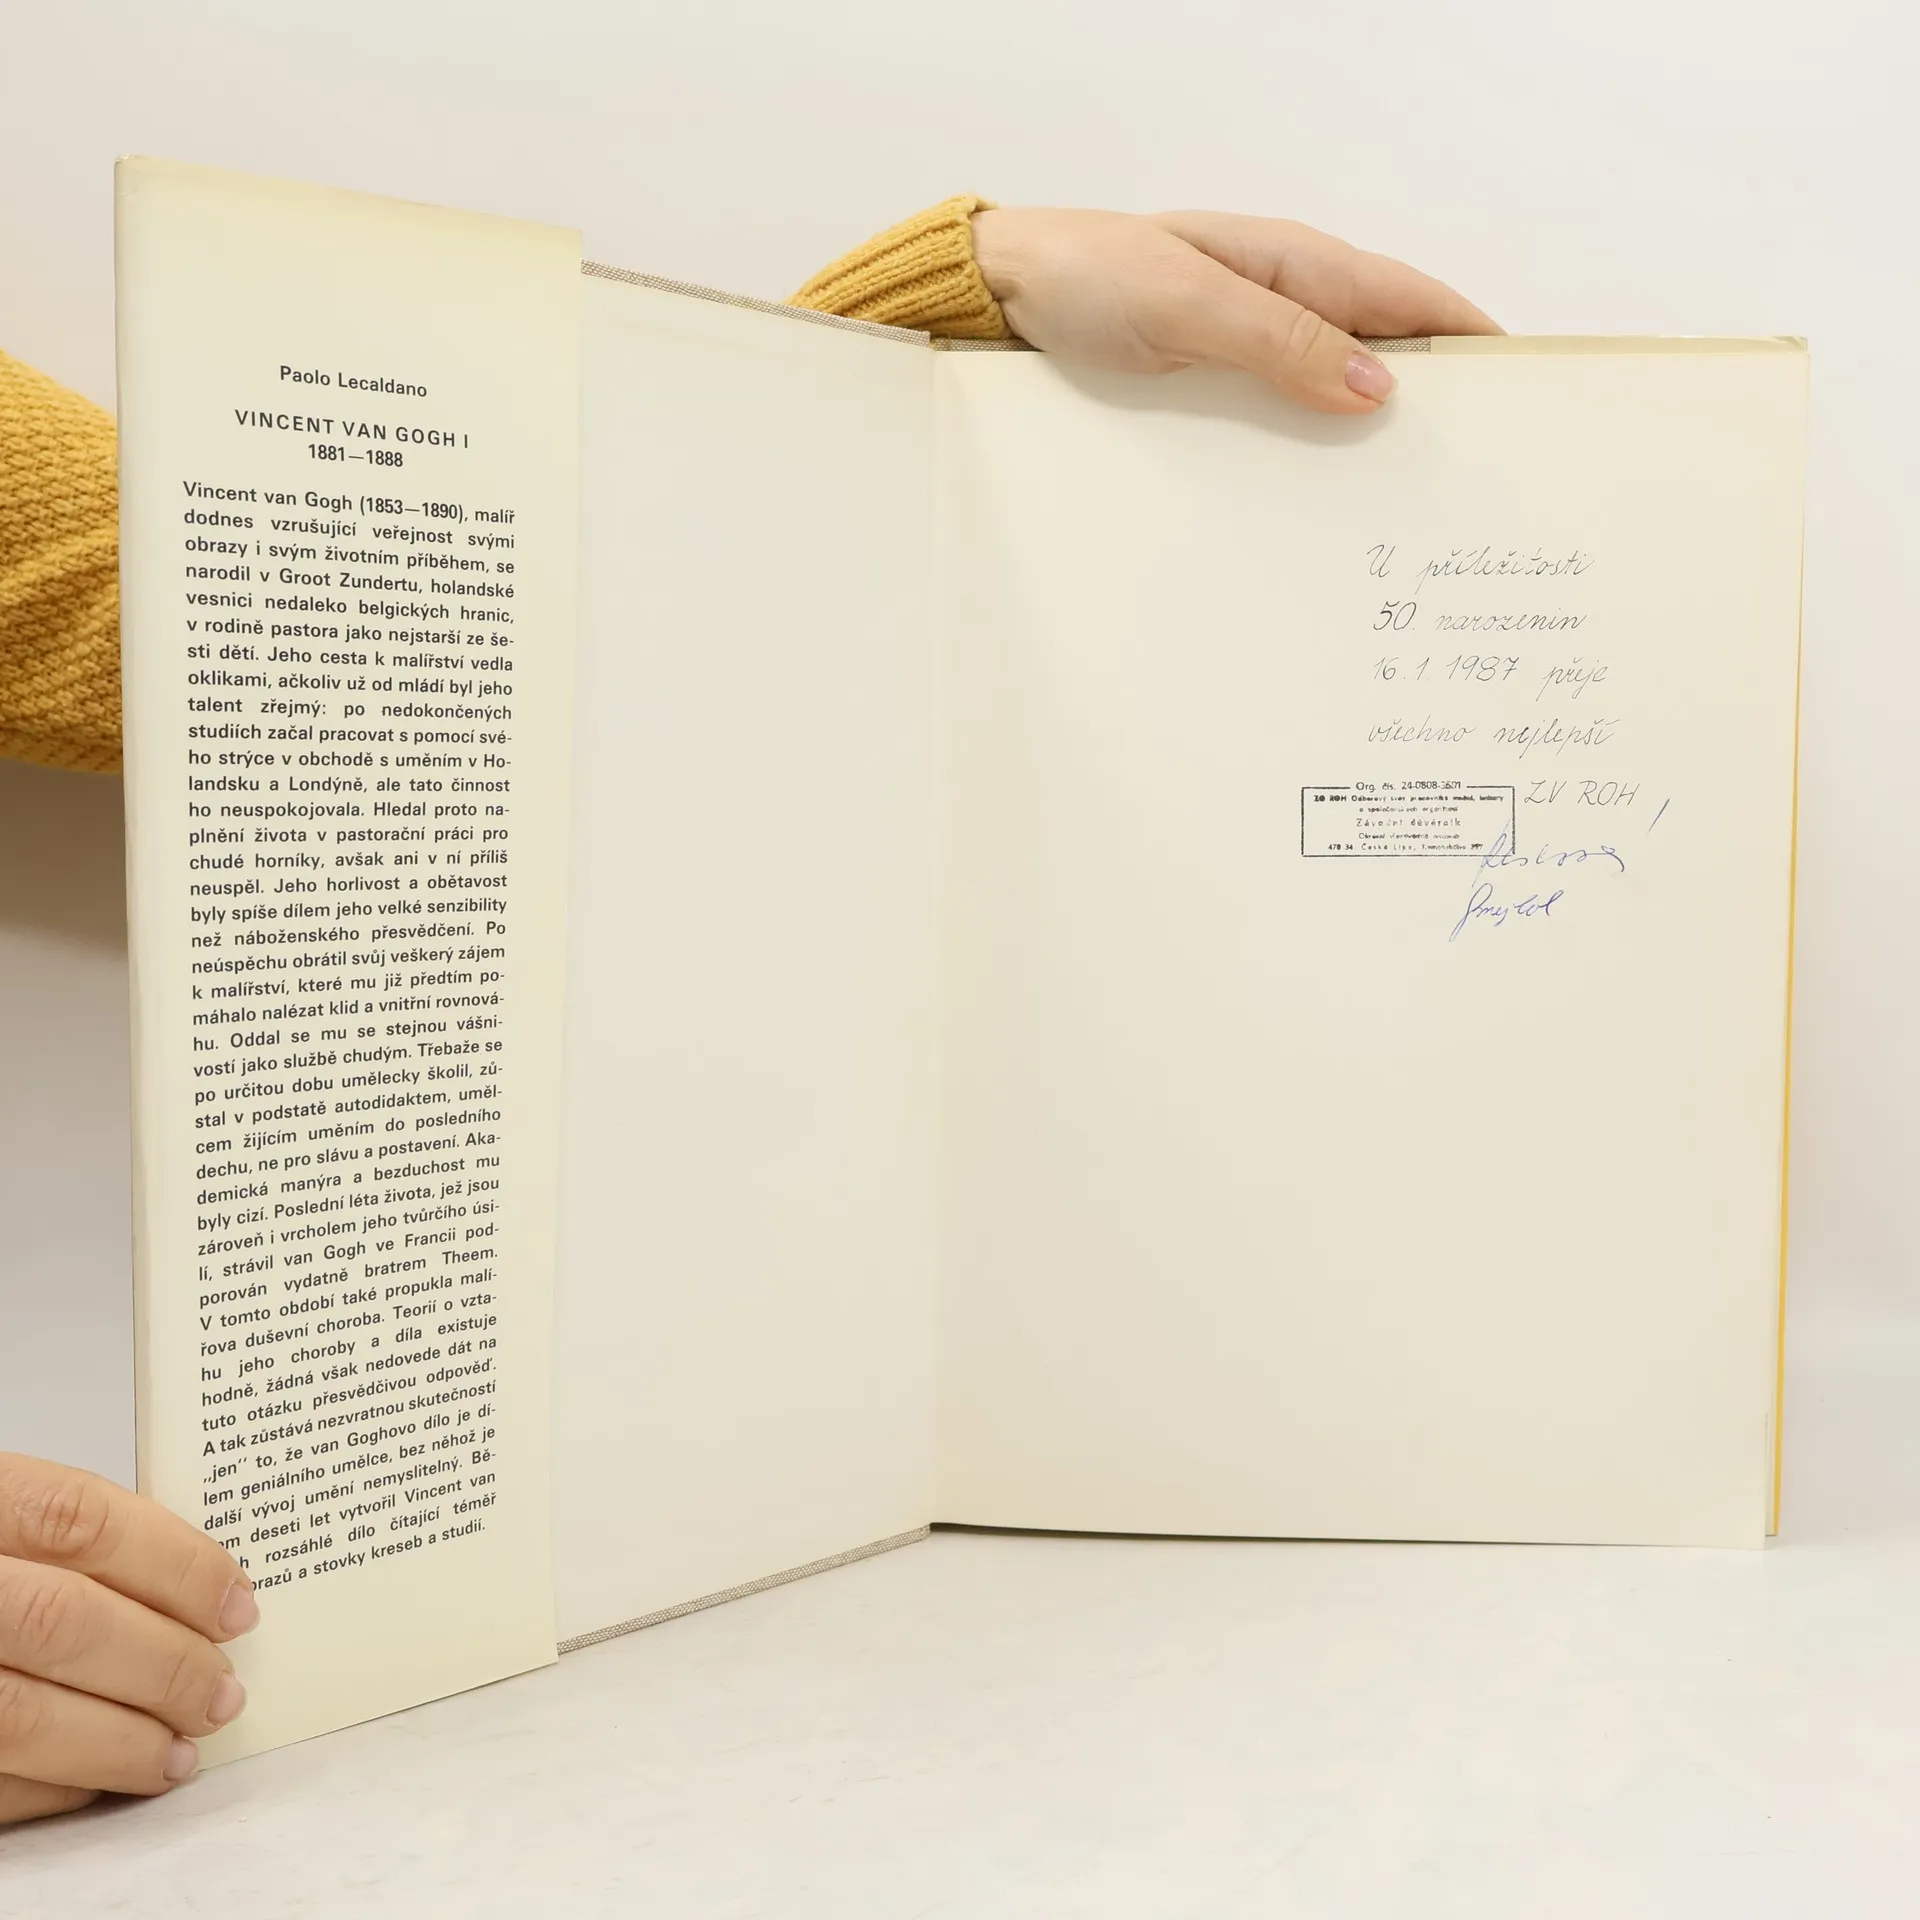 Paolo Lecaldano
VINCENT VAN GOGH I
1881—1888
Vincent van Gogh (1853—1890), malíř
dodnes vzrušující veřejnost svými
obrazy i svým životním příběhem, se
narodil v Groot Zundertu, holandské
vesnici nedaleko belgických hranic,
v rodině pastora jako nejstarší ze še-
sti dětí. Jeho cesta k malířství vedla
oklikami, ačkoliv už od mládí byl jeho
talent zřejmý: po nedokončených
studiích začal pracovat s pomocí své-
ho strýce v obchodě s uměním v Ho-
landsku a Londýně, ale tato činnost
ho neuspokojovala. Hledal proto na-
plnění života v pastorační práci pro
chudé horníky, avšak ani v ní příliš
neuspěl. Jeho horlivost a obětavost
byly spíše dílem jeho velké senzibility
než náboženského přesvědčení. Po
neúspěchu obrátil svůj veškerý zájem
k malířství, které mu již předtím po-
máhalo nalézat klid a vnitřní rovnová-
hu. Oddal se mu se stejnou vášni-
vostí jako službě chudým. Třebaže se
po určitou dobu umělecky školil, zů-
stal v podstatě autodidaktem, uměl-
cem žijícím uměním do posledního
dechu, ne pro slávu a postavení. Aka-
demická manýra a bezduchost mu
byly cizí. Poslední léta života, jež jsou
zároveň i vrcholem jeho tvůrčího úsi-
lí, strávil van Gogh ve Francii pod-
porován vydatně bratrem Theem.
V tomto období také propukla malí-
řova duševní choroba. Teorií o vzta-
hu jeho choroby a díla existuje
hodně, žádná však nedovede dát na
tuto otázku přesvědčivou odpověď.
A tak zůstává nezvratnou skutečností
„jen" to, že van Goghovo dílo je dí-
lem geniálního umělce, bez něhož je
další vývoj umění nemyslitelný. Bě-
em deseti let vytvořil Vincent van
h rozsáhlé dílo čítající téměř
brazů a stovky kreseb a studií.
U příležitosti
50. narozenin
16. 1. 1987 přeje
všechno nejlepší
ZV ROH
Org. čís. 24-0808-3601
ZO ROH Odborový svaz pracovníků
a společenských organizací
Závodní důvěrník
Okresní vlastivědné muzeum
470 34 Česká Lípa,